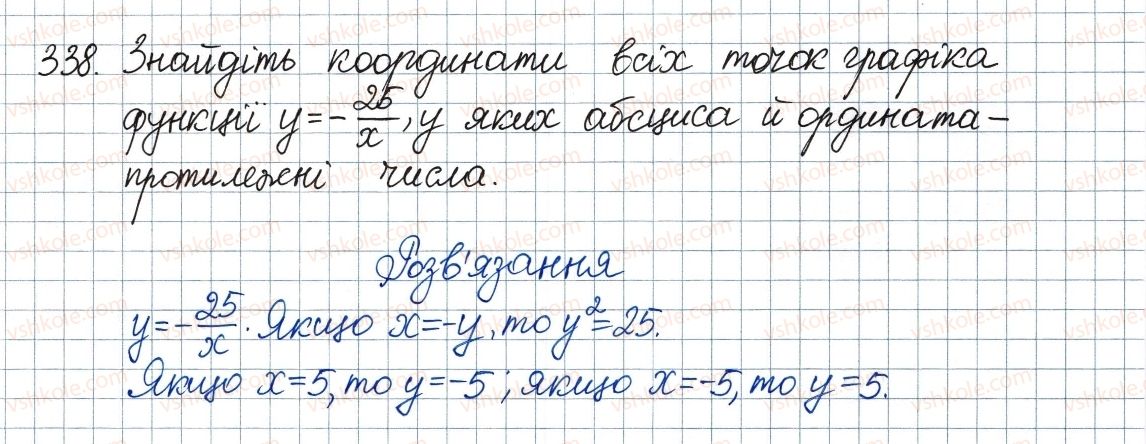 338. Знайдіть координати всіх точок графіка
функції y = -25/x, у яких абсциса й ордината –
протилежні числа.
Розв'язання
y = -25/x. Якщо x = -y, то y² = 25.
Якщо x = 5, то y = -5; якщо x = -5, то y = 5.